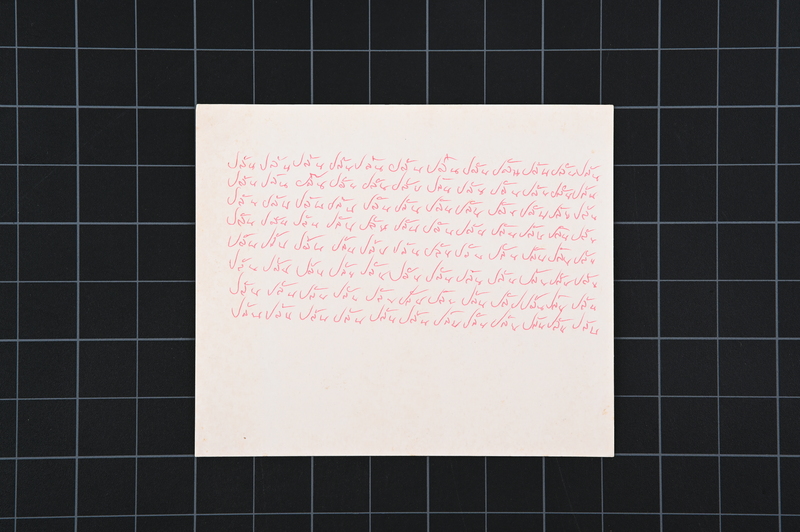 ปล้น ปล้น ปล้น ปล้น ปล้น ปล้น ปล้น ปล้น ปล้น ปล้น ปล้น ปล้น
ปล้น ปล้น ปล้น ปล้น ปล้น ปล้น ปล้น ปล้น ปล้น ปล้น ปล้น ปล้น
ปล้น ปล้น ปล้น ปล้น ปล้น ปล้น ปล้น ปล้น ปล้น ปล้น ปล้น ปล้น
ปล้น ปล้น ปล้น ปล้น ปล้น ปล้น ปล้น ปล้น ปล้น ปล้น ปล้น ปล้น
ปล้น ปล้น ปล้น ปล้น ปล้น ปล้น ปล้น ปล้น ปล้น ปล้น ปล้น ปล้น
ปล้น ปล้น ปล้น ปล้น ปล้น ปล้น ปล้น ปล้น ปล้น ปล้น ปล้น ปล้น
ปล้น ปล้น ปล้น ปล้น ปล้น ปล้น ปล้น ปล้น ปล้น ปล้น ปล้น ปล้น
ปล้น ปล้น ปล้น ปล้น ปล้น ปล้น ปล้น ปล้น ปล้น ปล้น ปล้น ปล้น